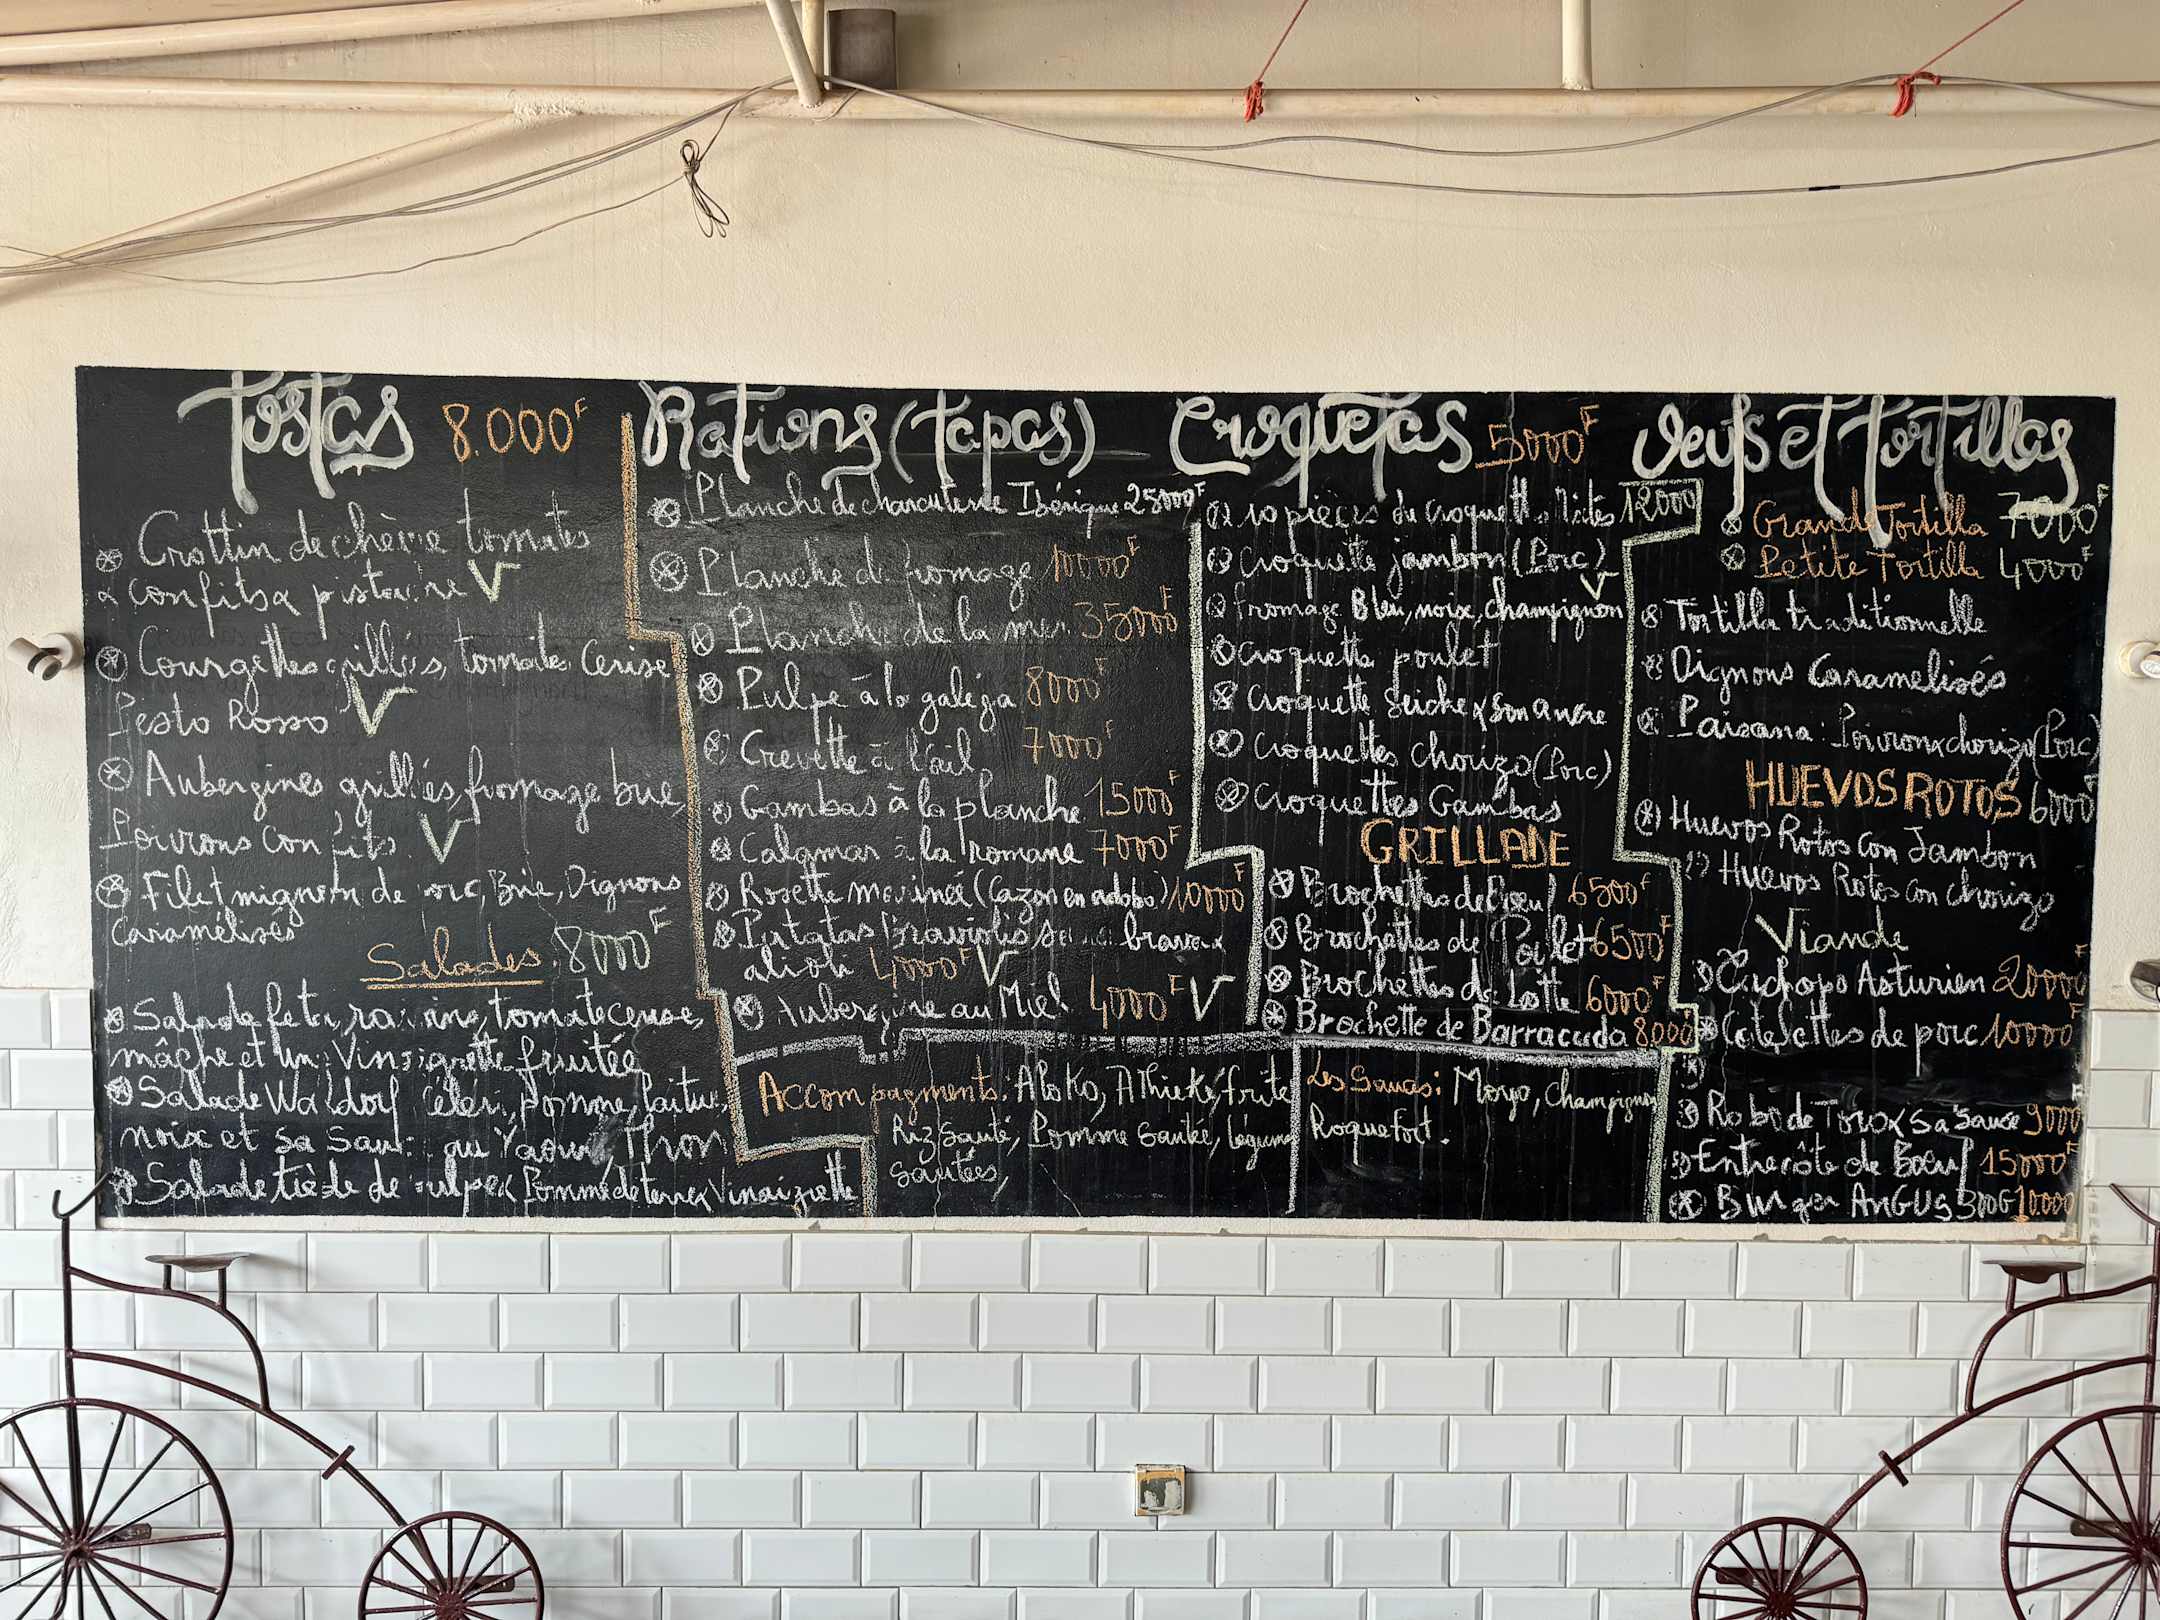 Tostas 8.000F
Crottin de chèvre tomates
confits & pistache V
Courgettes grillées, tomate Cerise
Pesto Rosso V
Aubergines grillés, fromage bue,
Poivrons confits. V
Filet mignon de porc, Brie, Oignons
Caramélisés
Salades. 8000F
Salade feta, raisins, tomate cerise,
mâche et un Vinaigrette fruitée
Salade Waldorf Céleri, pomme, laitue,
noix et sa sauce au Yaourt, Thon
Salade tiède de Pulpe & Pomme de terre & Vinaigrette
Rations (tapas)
Planche de charcuterie Ibérique 25000F
Planche de fromage 10000F
Planche de la mer 35000F
Pulpe à la galéga 8000F
Crevette à l'ail 7000F
Gambas à la planche 15000F
Calamar à la romane 7000F
Rosette marinée (Cazon en adobo) 10000F
Patatas Braviolis brava &
alioli 4000F V
Aubergine au Miel 4000F V
Accompagments: Aloko, Athieké, frite
Riz Sauté, Pomme sautée, légume
sautées,
Croquetas 5000F
10 pièces de croquette Mixtes 12000
Croquette jambon (Porc)
fromage Bleu, noix, champignon V
Croquette poulet
Croquette Seiche & son ancre
Croquettes Chorizo (Porc)
Croquettes Gambas
GRILLADE
Brochettes de Boeuf 6500F
Brochettes de Poulet 6500F
Brochettes de Lotte 6000F
Brochette de Barracuda 8.000
Les Sauces: Moyo, Champignon
Roquefort.
Oeufs et Tortillas
Grande Tortilla 7000F
Petite Tortilla 4000F
Tortilla traditionnelle
Oignons Caramelisés
Paisana: Poivron & chorizo (Porc)
HUEVOS ROTOS 6000F
Huevos Rotos Con Jambon
Huevos Rotos Con chorizo
Viande
Cachopo Asturien 20000F
Cotelettes de porc 10000F
Rabo de Toro & Sa Sauce 9000F
Entrecôte de Boeuf 15000F
Burger ANGUS 300G 10.000